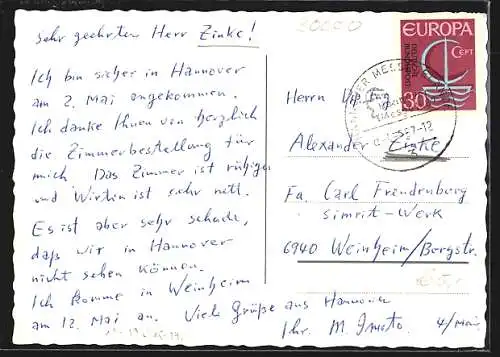 sehr geehrten Herr Zinke!
Ich bin sicher in Hannover
am 2. Mai angekommen.
Ich danke Ihnen von herzlich
die Zimmerbestellung für
mich. Das Zimmer ist ruhig
und Wirtin ist sehr nett.
Es ist aber sehr schade,
daß wir in Hannover
nicht sehen können.
Ich komme in Weinheim
am 12. Mai an. Viele Grüße aus Hannover
Ihr. M. Imoto. 4/Mai
EUROPA
CEPT
DEUTSCHE
BUNDESPOST
30
Herrn Dip. Ing.
Alexander Zinke
Fa. Carl Freudenberg
Simrit-Werk
6940 Weinheim/Bergstr.